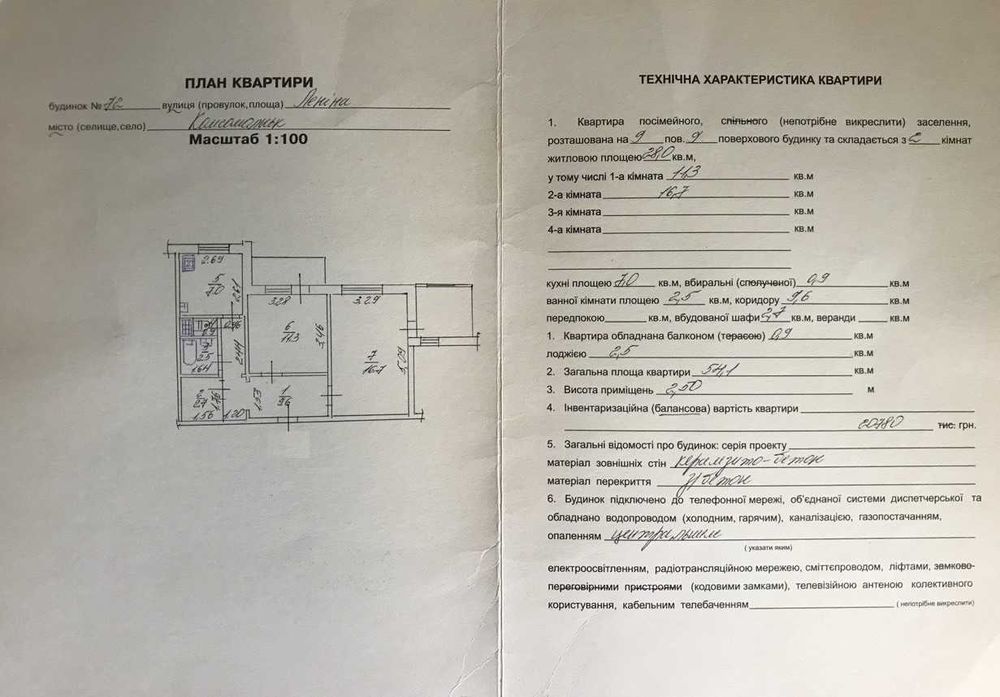 ПЛАН КВАРТИРИ
будинок № 72 вулиця (провулок,площа) Леніна
місто (селище,село) Комсомольськ
Масштаб 1:100
2.69
5
7.0
2.61
3.28
3.29
0.96
6
11.3
3.46
7
16.7
5.09
2.5
1.64
2.44
2.7
1.76
1.56
1.20
1.53
1
9.6
ТЕХНІЧНА ХАРАКТЕРИСТИКА КВАРТИРИ
1. Квартира посімейного, спільного (непотрібне викреслити) заселення,
розташована на 9 пов. 9 поверхового будинку та складається з 2 кімнат
житловою площею 28,0 кв.м,
у тому числі 1-а кімната 11,3 кв.м
2-а кімната 16,7 кв.м
3-я кімната кв.м
4-а кімната кв.м
кухні площею 7.0 кв.м, вбиральні (сполученої) 0,9 кв.м
ванної кімнати площею 2,5 кв.м, коридору 9,6 кв.м
передпокою кв.м, вбудованої шафи 2,7 кв.м, веранди кв.м
1. Квартира обладнана балконом (терасою) 0,9 кв.м
лоджією 2,5 кв.м
2. Загальна площа квартири 54,1 кв.м
3. Висота приміщень 2,50 м
4. Інвентаризаційна (балансова) вартість квартири
20780 тис. грн.
5. Загальні відомості про будинок: серія проекту
матеріал зовнішніх стін керамзито-бетон
матеріал перекриття з/бетон
6. Будинок підключено до телефонної мережі, об'єднаної системи диспетчерської та
обладнано водопроводом (холодним, гарячим), каналізацією, газопостачанням,
опаленням центральне
( указати яким)
електроосвітленням, радіотрансляційною мережею, сміттєпроводом, ліфтами, замково-
переговірними пристроями (кодовими замками), телевізійною антеною колективного
користування, кабельним телебаченням ( непотрібне викреслити)